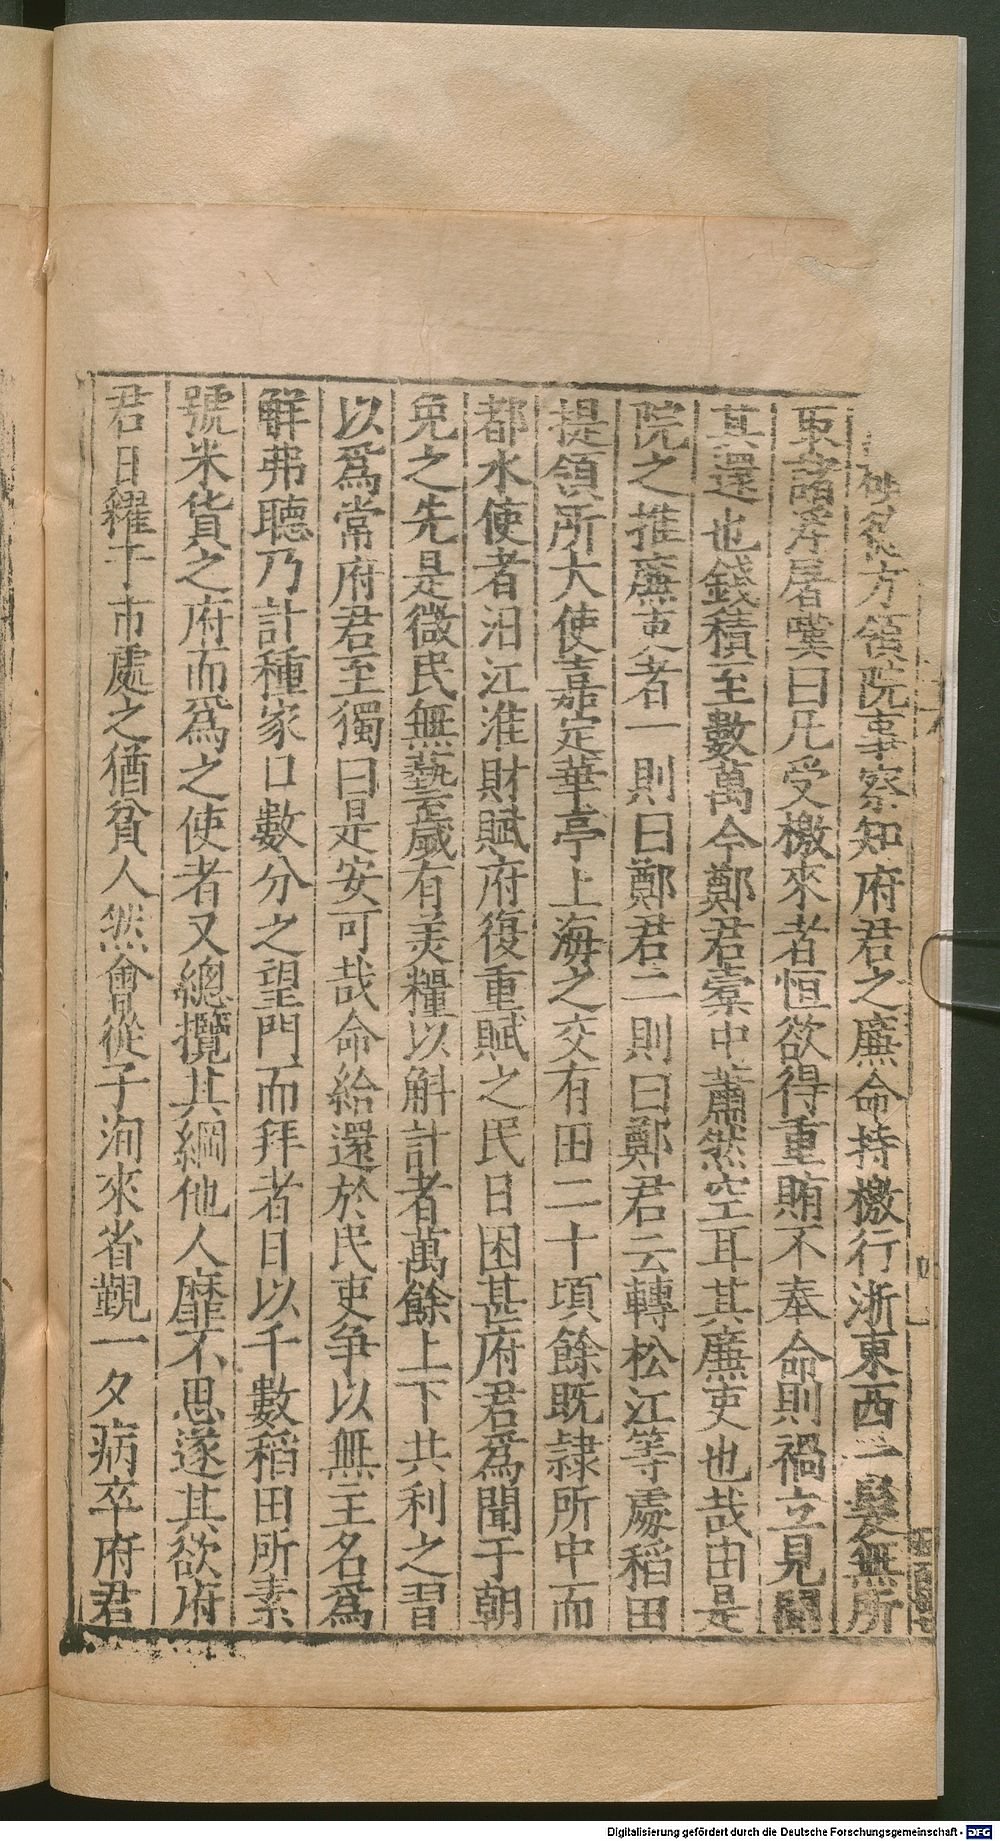 方領院事察知府君之廉命持檄行浙東西一髮無所
東諸滓屠嘆曰凡受檄來者恒欲得重賄不奉命則禍立見
其還也錢積至數萬今鄭君橐中蕭然空耳其廉吏也哉由是
院之推廉吏者一則曰鄭君二則曰鄭君云轉松江等處稻田
提領所大使嘉定華亭上海之交有田二十頃餘既隷所中而
都水使者汨江淮財賦府復重賦之民日困甚府君爲聞于朝
免之先是徵民無藝歲有羡糧以斛計者萬餘上下共利之習
以爲常府君至獨曰是安可哉命給還於民吏争以無主名爲
解弗聽乃計種家口數分之望門而拜者日以千數稻田所素
號米貨之府而爲之使者又總攬其綱他人靡不思遂其欲府
君日糴于市處之猶貧人然會從子洵來省覲一夕病卒府君
Digitalisierung gefördert durch die Deutsche Forschungsgemeinschaft - DFG